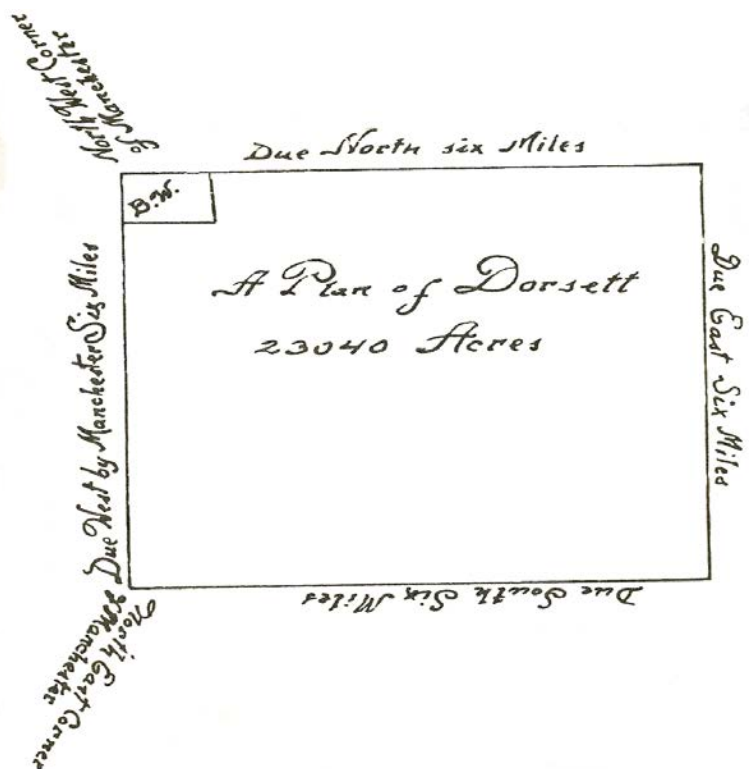 North West Corner
of Manchester
Due North six Miles
B.W.
A Plan of Dorsett
23040 Acres
Due East Six Miles
Due South Six Miles
Due West by Manchester Six Miles
North East Corner
of Manchester